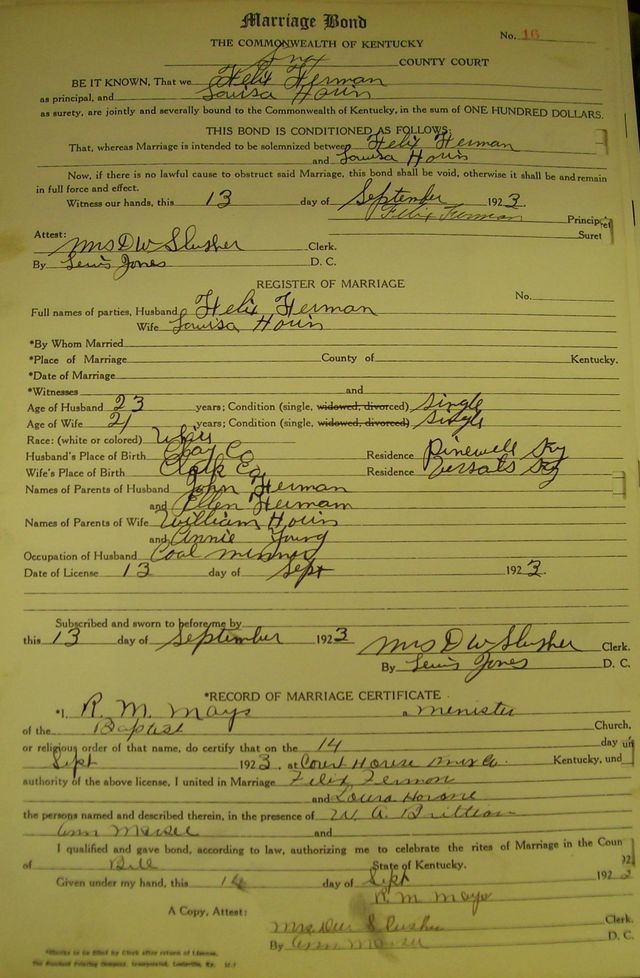 Marriage Bond
No. 16
THE COMMONWEALTH OF KENTUCKY
Knox COUNTY COURT
BE IT KNOWN, That we Felix Herman
as principal, and Louisa Horin
as surety, are jointly and severally bound to the Commonwealth of Kentucky, in the sum of ONE HUNDRED DOLLARS.
THIS BOND IS CONDITIONED AS FOLLOWS:
That, whereas Marriage is intended to be solemnized between Felix Herman
and Louisa Horin
Now, if there is no lawful cause to obstruct said Marriage, this bond shall be void, otherwise it shall be and remain
in full force and effect.
Witness our hands, this 13 day of September 1923.
Felix Furman Principal
Surety
Attest:
Mrs D W Slusher Clerk.
By Lewis Jones D. C.
REGISTER OF MARRIAGE
No.
Full names of parties, Husband Felix Herman
Wife Louisa Horin
*By Whom Married
*Place of Marriage County of Kentucky.
*Date of Marriage
*Witnesses and
Age of Husband 23 years; Condition (single, widowed, divorced) Single
Age of Wife 21 years; Condition (single, widowed, divorced) Single
Race: (white or colored) White
Husband's Place of Birth Clay Co Residence Pinewell Ky
Wife's Place of Birth Clark Co Residence Versals Ky
Names of Parents of Husband John Herman
and Ellen Hermam
Names of Parents of Wife William Horin
and Annie Young
Occupation of Husband Coal minner
Date of License 13 day of Sept 1923.
Subscribed and sworn to before me by
this 13 day of September 1923 Mrs D W Slusher Clerk.
By Lewis Jones D. C.
*RECORD OF MARRIAGE CERTIFICATE
*I, R. M. Mays a menister
of the Baptist Church,
or religious order of that name, do certify that on the 14 day
Sept 1923, at Court House Knox Co. Kentucky, und
authority of the above license, I united in Marriage Felix Fermon
and Loura Horane
the persons named and described therein, in the presence of W. A. Brittian
Ann Marsee and
I qualified and gave bond, according to law, authorizing me to celebrate the rites of Marriage in the Coun
of Bell State of Kentucky.
Given under my hand, this 14 day of Sept 192
R. M. Mays
A Copy, Attest:
Mrs. DW Slusher Clerk.
By Ann Marsee D. C.
*Blanks to be filled by Clerk after return of License.